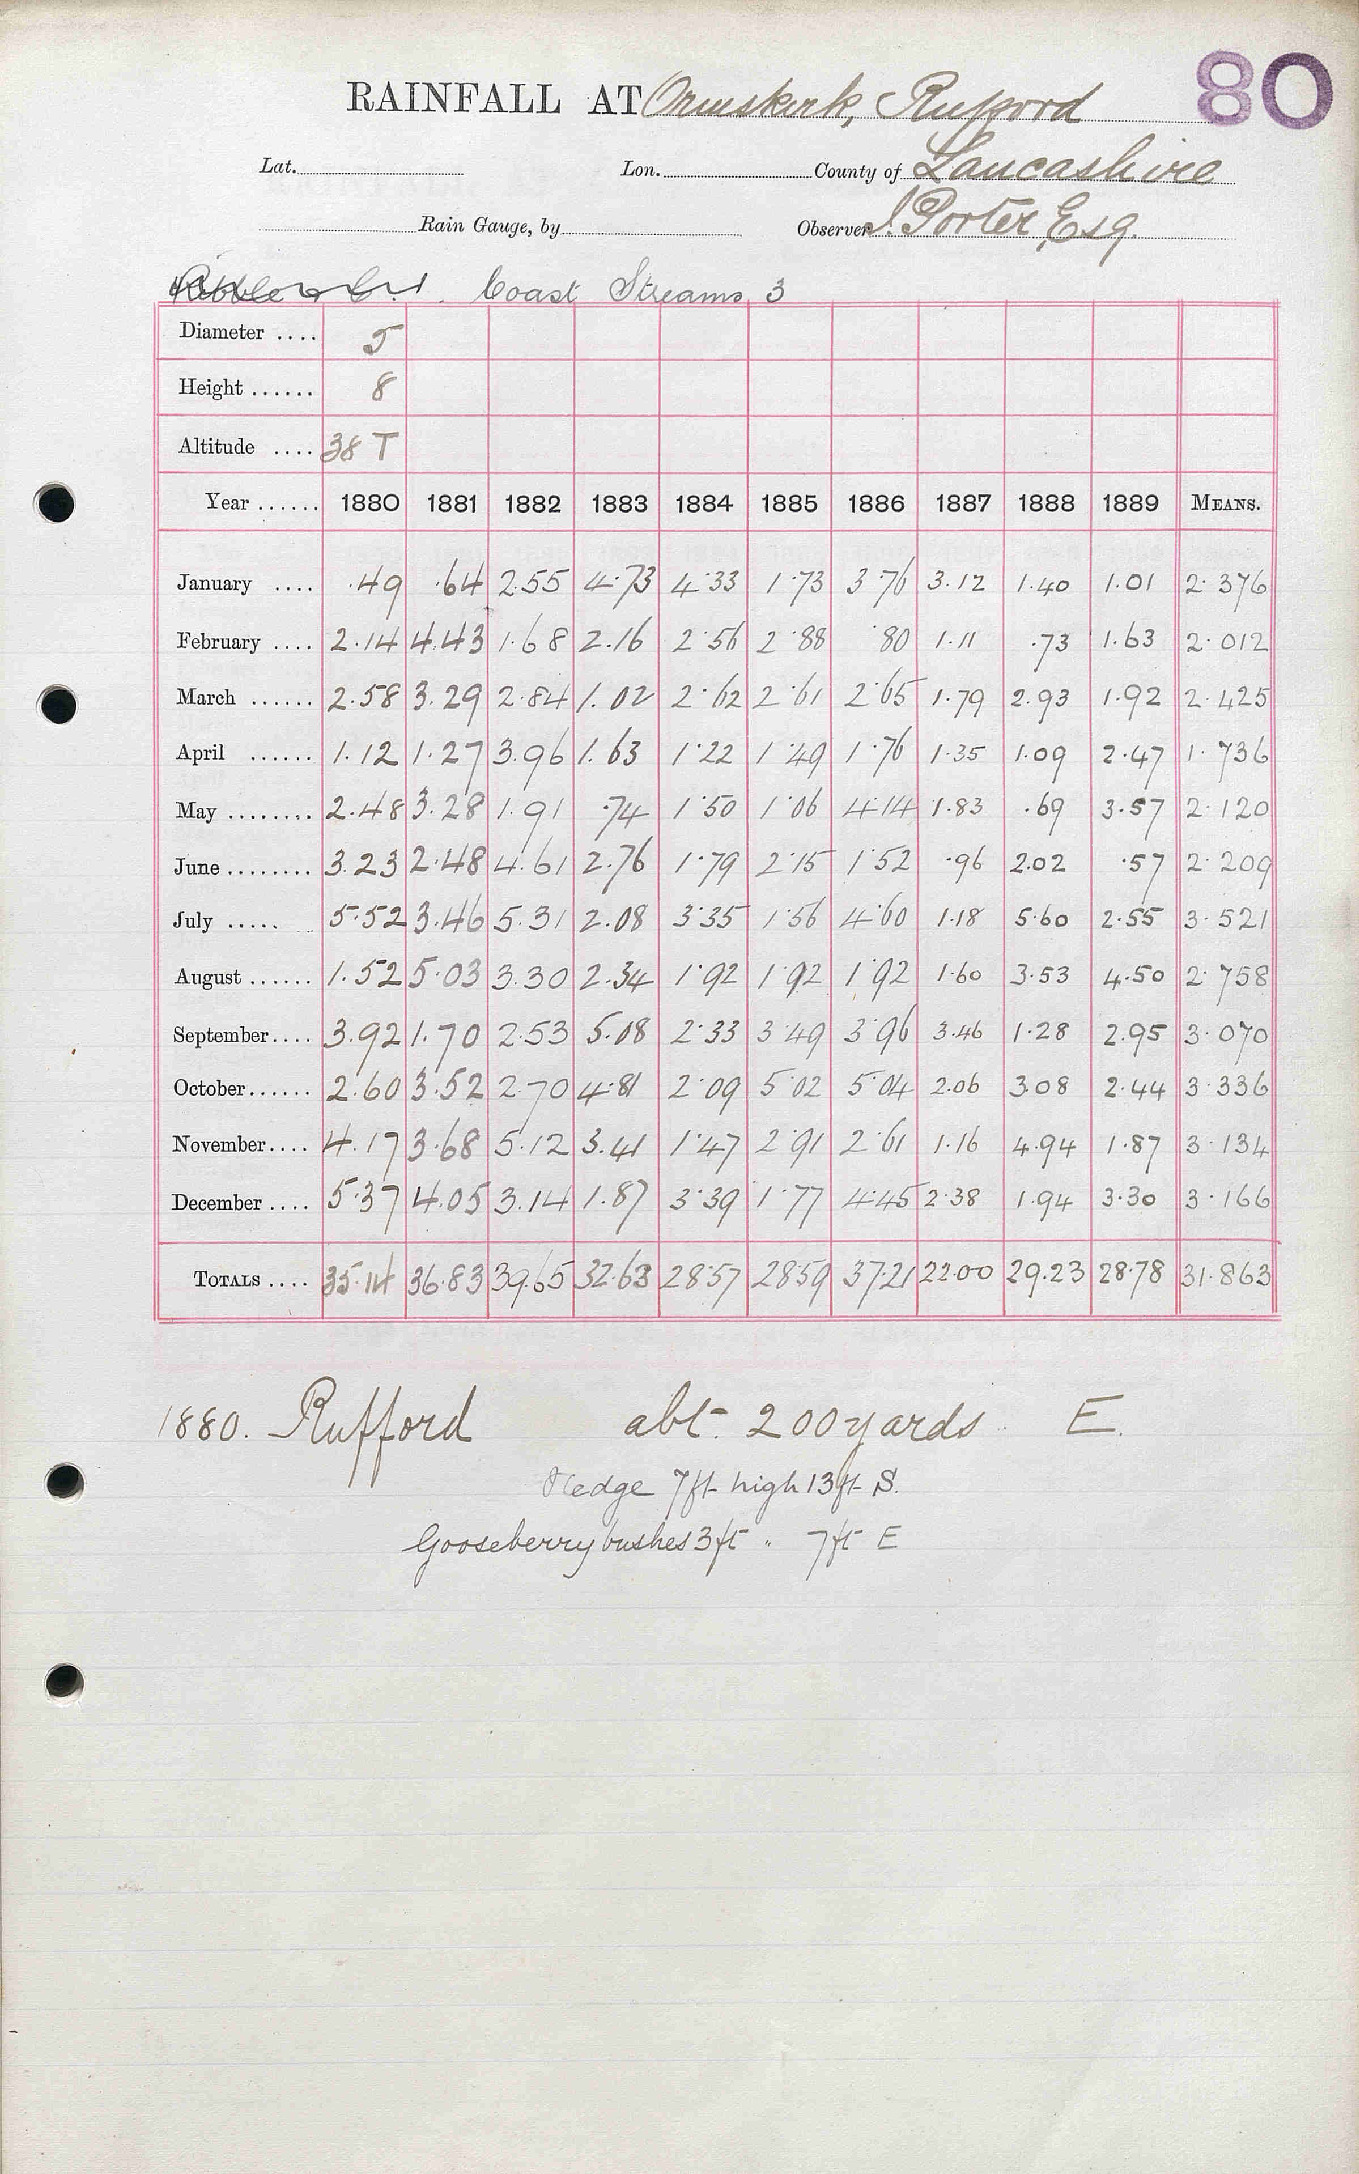 80
RAINFALL AT Ormskirk, Rufford
Lat. Lon. County of Lancashire
Rain Gauge, by Observer J. Porter Esq.
Coast Streams 3
Diameter .... 5
Height ...... 8
Altitude .... 38 T
Year ...... 1880 1881 1882 1883 1884 1885 1886 1887 1888 1889 MEANS.
January .... .49 .64 2.55 4.73 4.33 1.73 3.76 3.12 1.40 1.01 2.376
February .... 2.14 4.43 1.68 2.16 2.56 2.88 .80 1.11 .73 1.63 2.012
March ...... 2.58 3.29 2.84 1.02 2.62 2.61 2.65 1.79 2.93 1.92 2.425
April ...... 1.12 1.27 3.96 1.63 1.22 1.49 1.76 1.35 1.09 2.47 1.736
May ........ 2.48 3.28 1.91 .74 1.50 1.06 4.14 1.83 .69 3.57 2.120
June ........ 3.23 2.48 4.61 2.76 1.79 2.15 1.52 .96 2.02 .57 2.209
July ..... 5.52 3.46 5.31 2.08 3.35 1.56 4.60 1.18 5.60 2.55 3.521
August ...... 1.52 5.03 3.30 2.34 1.92 1.92 1.92 1.60 3.53 4.50 2.758
September .... 3.92 1.70 2.53 5.08 2.33 3.49 3.96 3.46 1.28 2.95 3.070
October ...... 2.60 3.52 2.70 4.81 2.09 5.02 5.04 2.06 3.08 2.44 3.336
November .... 4.17 3.68 5.12 3.41 1.47 2.91 2.61 1.16 4.94 1.87 3.134
December .... 5.37 4.05 3.14 1.87 3.39 1.77 4.45 2.38 1.94 3.30 3.166
TOTALS .... 35.14 36.83 39.65 32.63 28.57 28.59 37.21 22.00 29.23 28.78 31.863
1880. Rufford abt. 200 yards E.
Hedge 7ft high 13ft S.
Gooseberry bushes 3ft " 7ft E